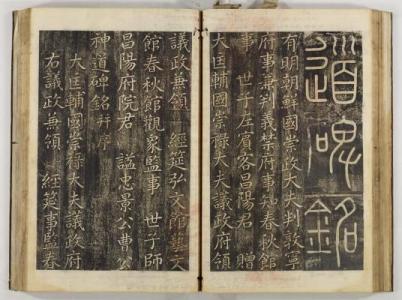 道碑銘
有明朝鮮國崇政大夫判敦寧
府事兼判義禁府事知春秋館
事 世子左賓客昌陽君 贈
大匡輔國崇祿大夫議政府領
議政兼領 經筵弘文館藝文
館春秋館觀象監事 世子師
昌陽府院君 諡忠景公曹公
神道碑銘 并序
大匡輔國崇祿大夫議政府
右議政兼領 經筵事監春